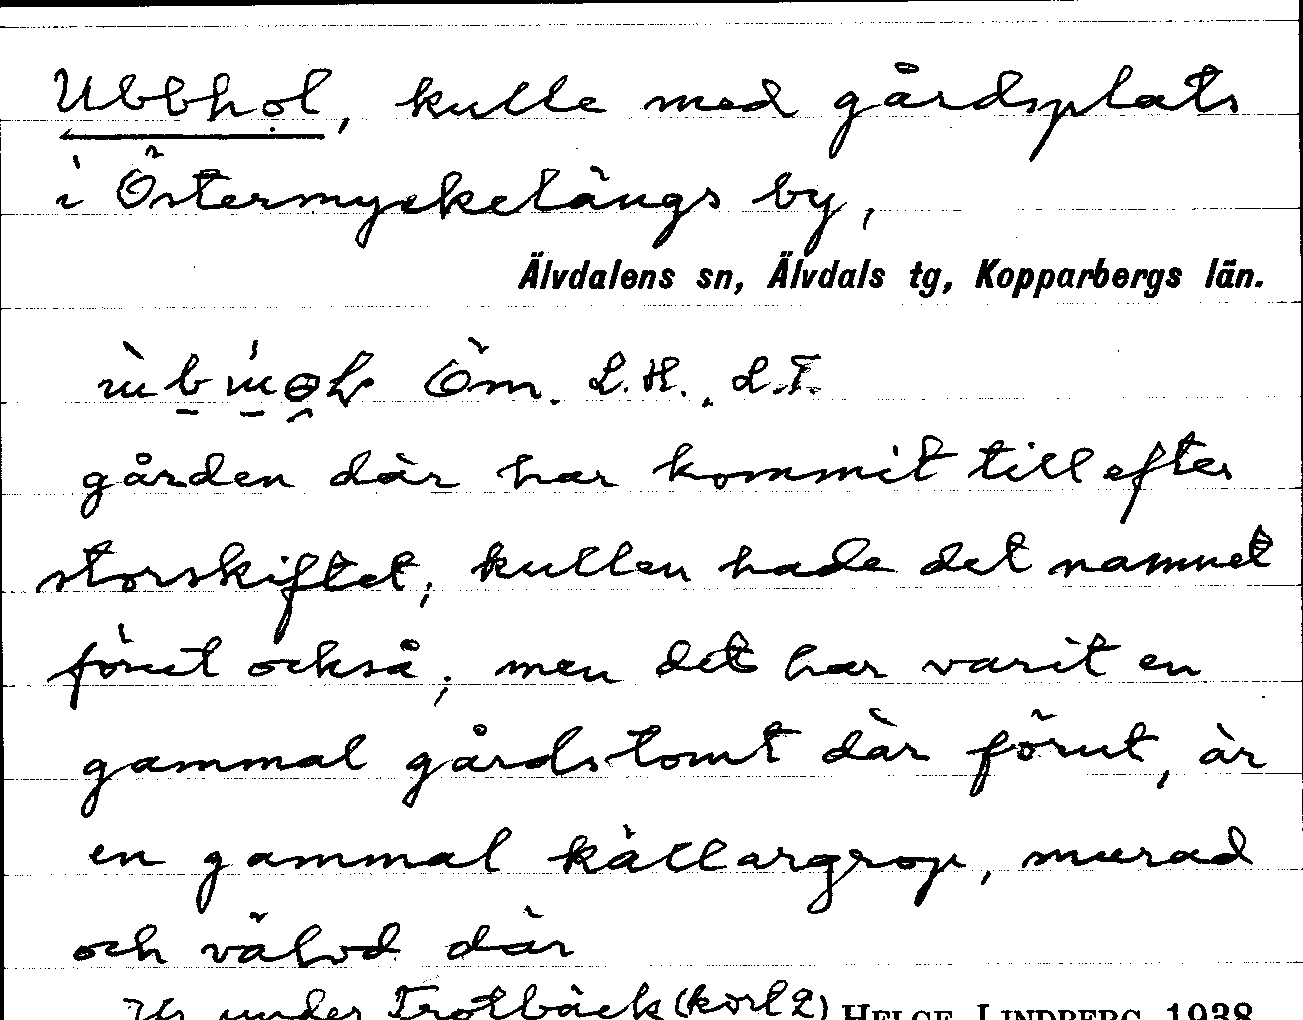 Ubbhol, kulle med gårdsplats
i Östermyckelängs by,
Älvdalens sn, Älvdals tg, Kopparbergs län.
Öm. L.H., L.T.
gården där har kommit till efter
storskiftet; kullen hade det namnet
förut också; men det har varit en
gammal gårdstomt där förut, är
en gammal källargrop, murad
och välvd där
under Trotbäck (kort 2) HELGE LINDBERG 1938